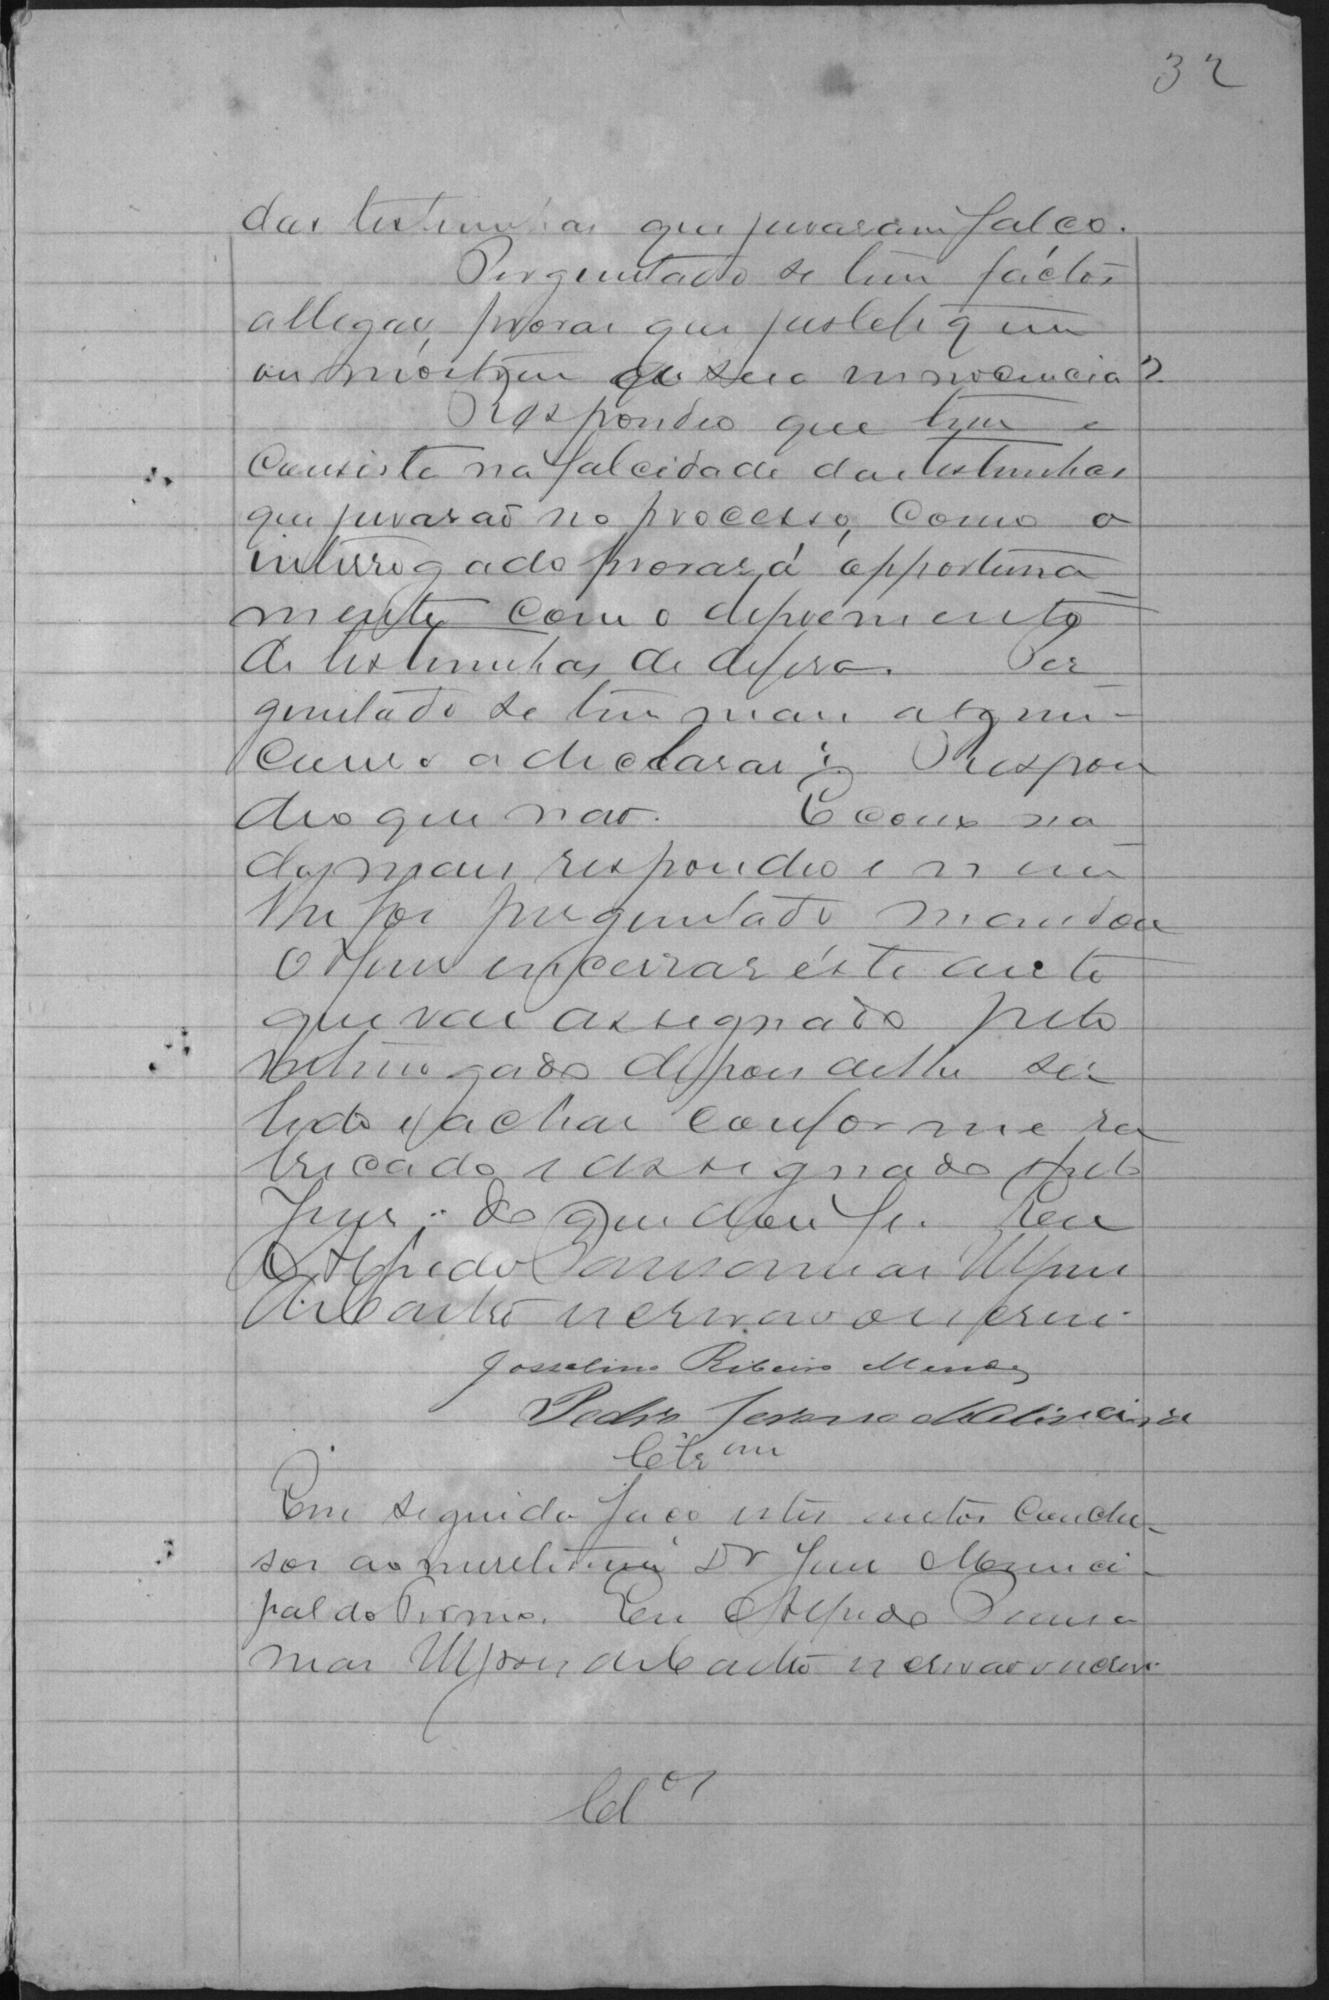 32
das testemunhas que juraram falço.
Perguntado se tem factos
allegar, provar que justefiquem
ou mostrem a sua innocencia?
Respondeo que tem e
Consiste na falcidade das testemunhas
que jurarão no processo, como o
interrogado provará opportuna
mente com o depoemento
de testemunhas de defesa. Per
guntado se tem mais algum
a declarar; Respon
deo que não. E como na
da mais respondeo e nem
lhe foi perguntado mandou
o Juiz encerrar éste auto
que vae assegnado pelo
interrogado depois delle ser
lido e achar conforme ru
bricado e assegnado pelo
Juiz; do que dou fé. Eu
Alfredo
de Castro escrivão o escrevi
Josselino Ribeiro Mendes
Pedro
Clsm
Em seguida faço estes autos Conclu-
sos ao meretissimo Dr Juiz Munici-
pal do Termo. Eu Alfredo
de Castro escrivão o escrevi
Clos